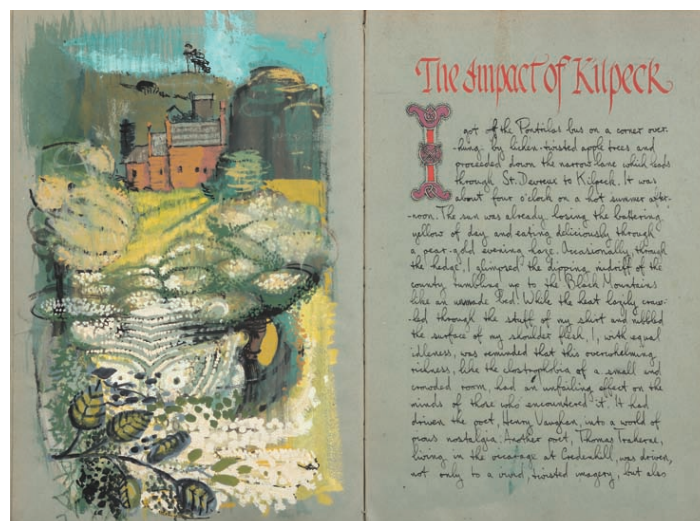 The Impact of Kilpeck
I got off the Pontrilas bus on a corner over-
-hung by lichen-twisted apple trees and
proceeded down the narrow lane which leads
through St. Devreux to Kilpeck. It was
about four o'clock on a hot summer after-
-noon. The sun was already losing the battering
yellow of day and eating deliciously through
a pear-gold evening haze. Occasionally, through
the hedge, I glimpsed the dipping midriff of the
county tumbling up to the Black Mountains
like an unmade bed. While the heat lazily craw-
-led through the stuff of my shirt and nibbled
the surface of my shoulder flesh, I, with equal
idleness, was reminded that this overwhelming
richness, like the claustrophobia of a small and
crowded room, had an unfailing effect on the
minds of those who encountered it. It had
driven the poet, Henry Vaughan, into a world of
pious nostalgia. Another poet, Thomas Traherne,
living in the vicarage at Credenhill, was driven,
not only to a vivid, twisted imagery, but also